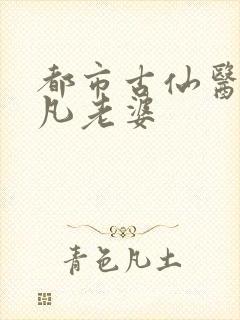 都市古仙醫
凡老婆
青色凡土